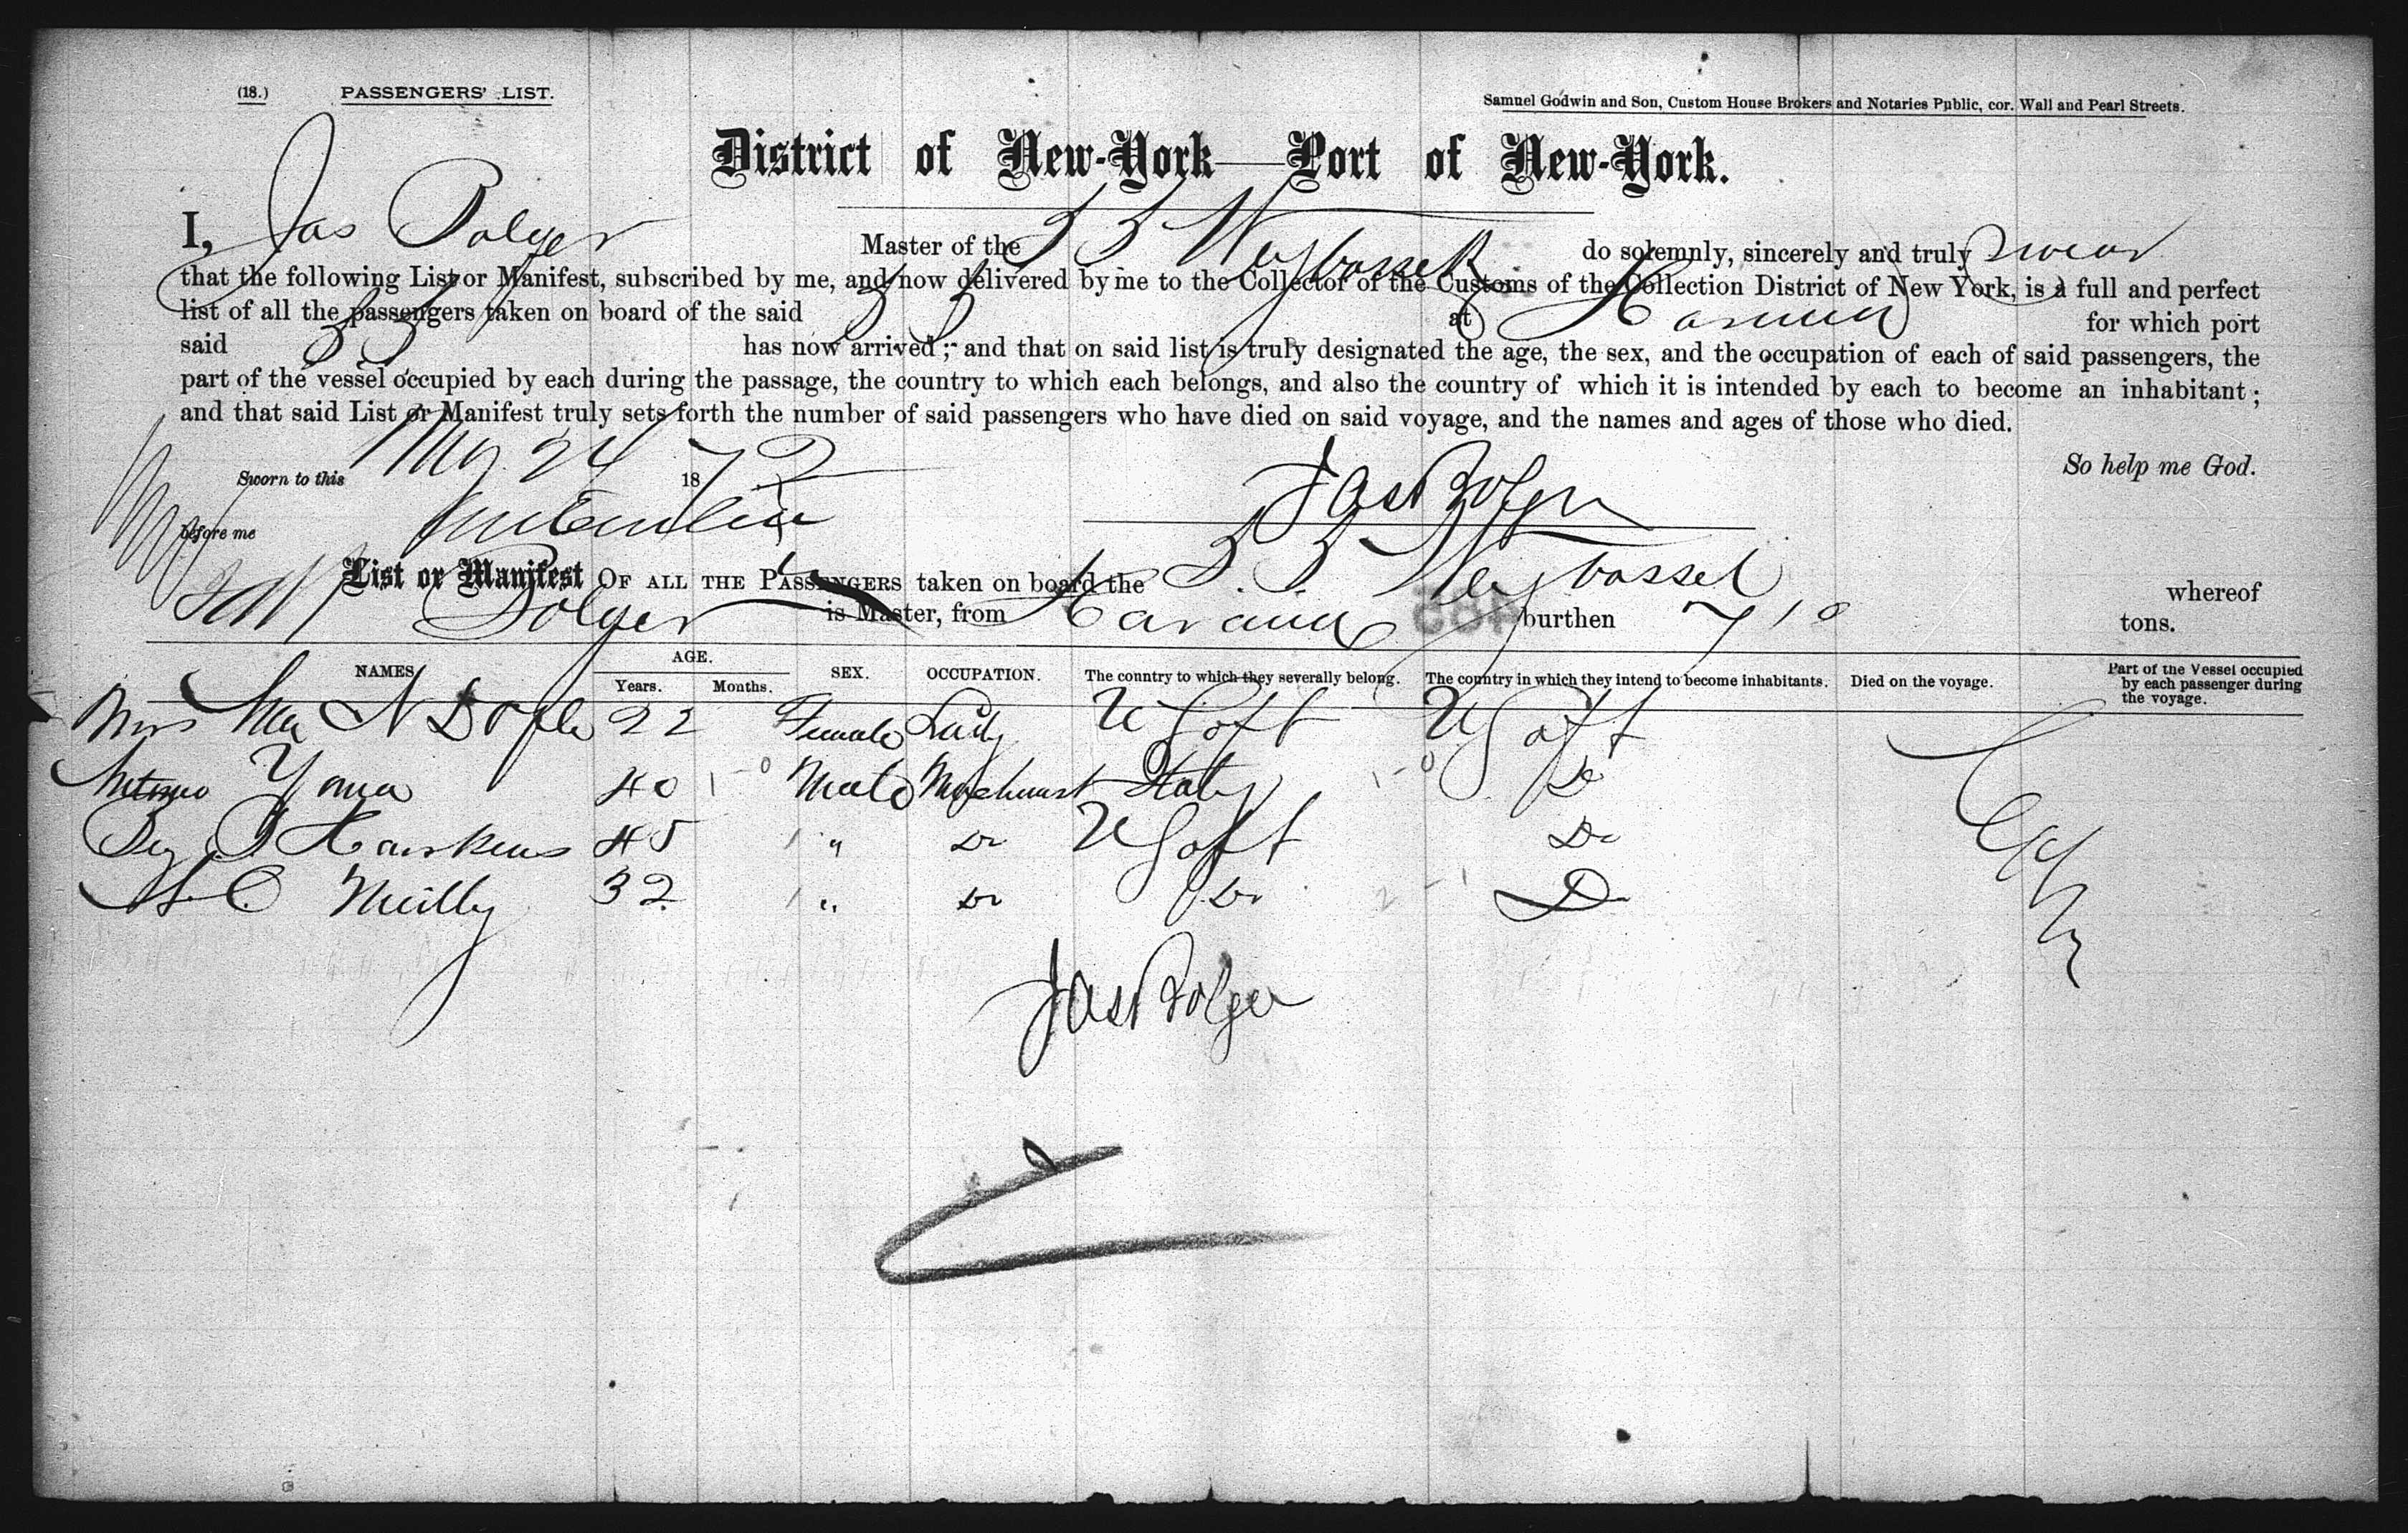 (18.) PASSENGERS' LIST.
Samuel Godwin and Son, Custom House Brokers and Notaries Public, cor. Wall and Pearl Streets.
District of New-York—Port of New-York.
I, Jas Bolger Master of the SS Weybosset do solemnly, sincerely and truly swear
that the following List or Manifest, subscribed by me, and now delivered by me to the Collector of the Customs of the Collection District of New York, is a full and perfect
list of all the passengers taken on board of the said SS at Havana for which port
said SS has now arrived; and that on said list is truly designated the age, the sex, and the occupation of each of said passengers, the
part of the vessel occupied by each during the passage, the country to which each belongs, and also the country of which it is intended by each to become an inhabitant;
and that said List or Manifest truly sets forth the number of said passengers who have died on said voyage, and the names and ages of those who died.
So help me God.
Sworn to this 24 1872
Jas Bolger
before me
List or Manifest OF ALL THE PASSENGERS taken on board the SS Weybosset whereof
Jas Bolger is Master, from Havana burthen 710 tons.
NAMES AGE. Years. Months. SEX. OCCUPATION. The country to which they severally belong. The country in which they intend to become inhabitants. Died on the voyage. Part of the Vessel occupied by each passenger during the voyage.
Mrs N 22 Female Lady U S of A U S of A
Antonio 40 Male Merchant Italy Do
J Hawkins 45 " Do U S of A Do
C Neilly 32 " Do Do Do
Jas Bolger